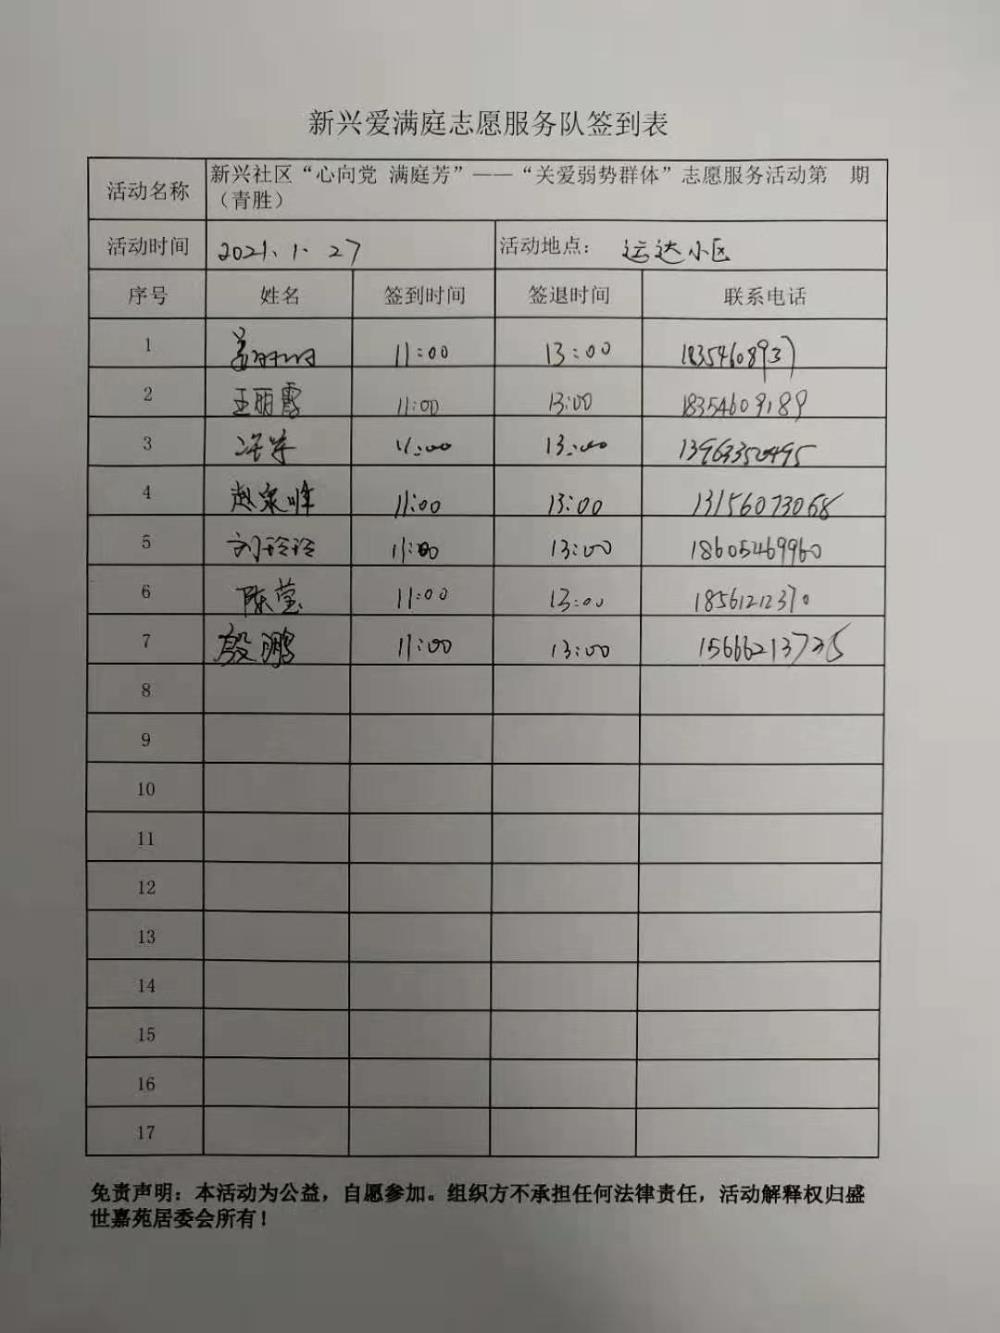 新兴爱满庭志愿服务队签到表
活动名称 新兴社区“心向党 满庭芳”——“关爱弱势群体”志愿服务活动第 期
（青胜）
活动时间 2021.1.27 活动地点： 运达小区
序号 姓名 签到时间 签退时间 联系电话
1 11:00 13:00
2 王丽霞 11:00 13:00 18354609189
3 11:00 13:00 13963350495
4 赵泉峰 11:00 13:00 13156073068
5 刘玲玲 11:00 13:00 18605469960
6 陈莹 11:00 13:00 18561212370
7 殷鹏 11:00 13:00 15666213735
8
9
10
11
12
13
14
15
16
17
免责声明：本活动为公益，自愿参加。组织方不承担任何法律责任，活动解释权归盛
世嘉苑居委会所有！